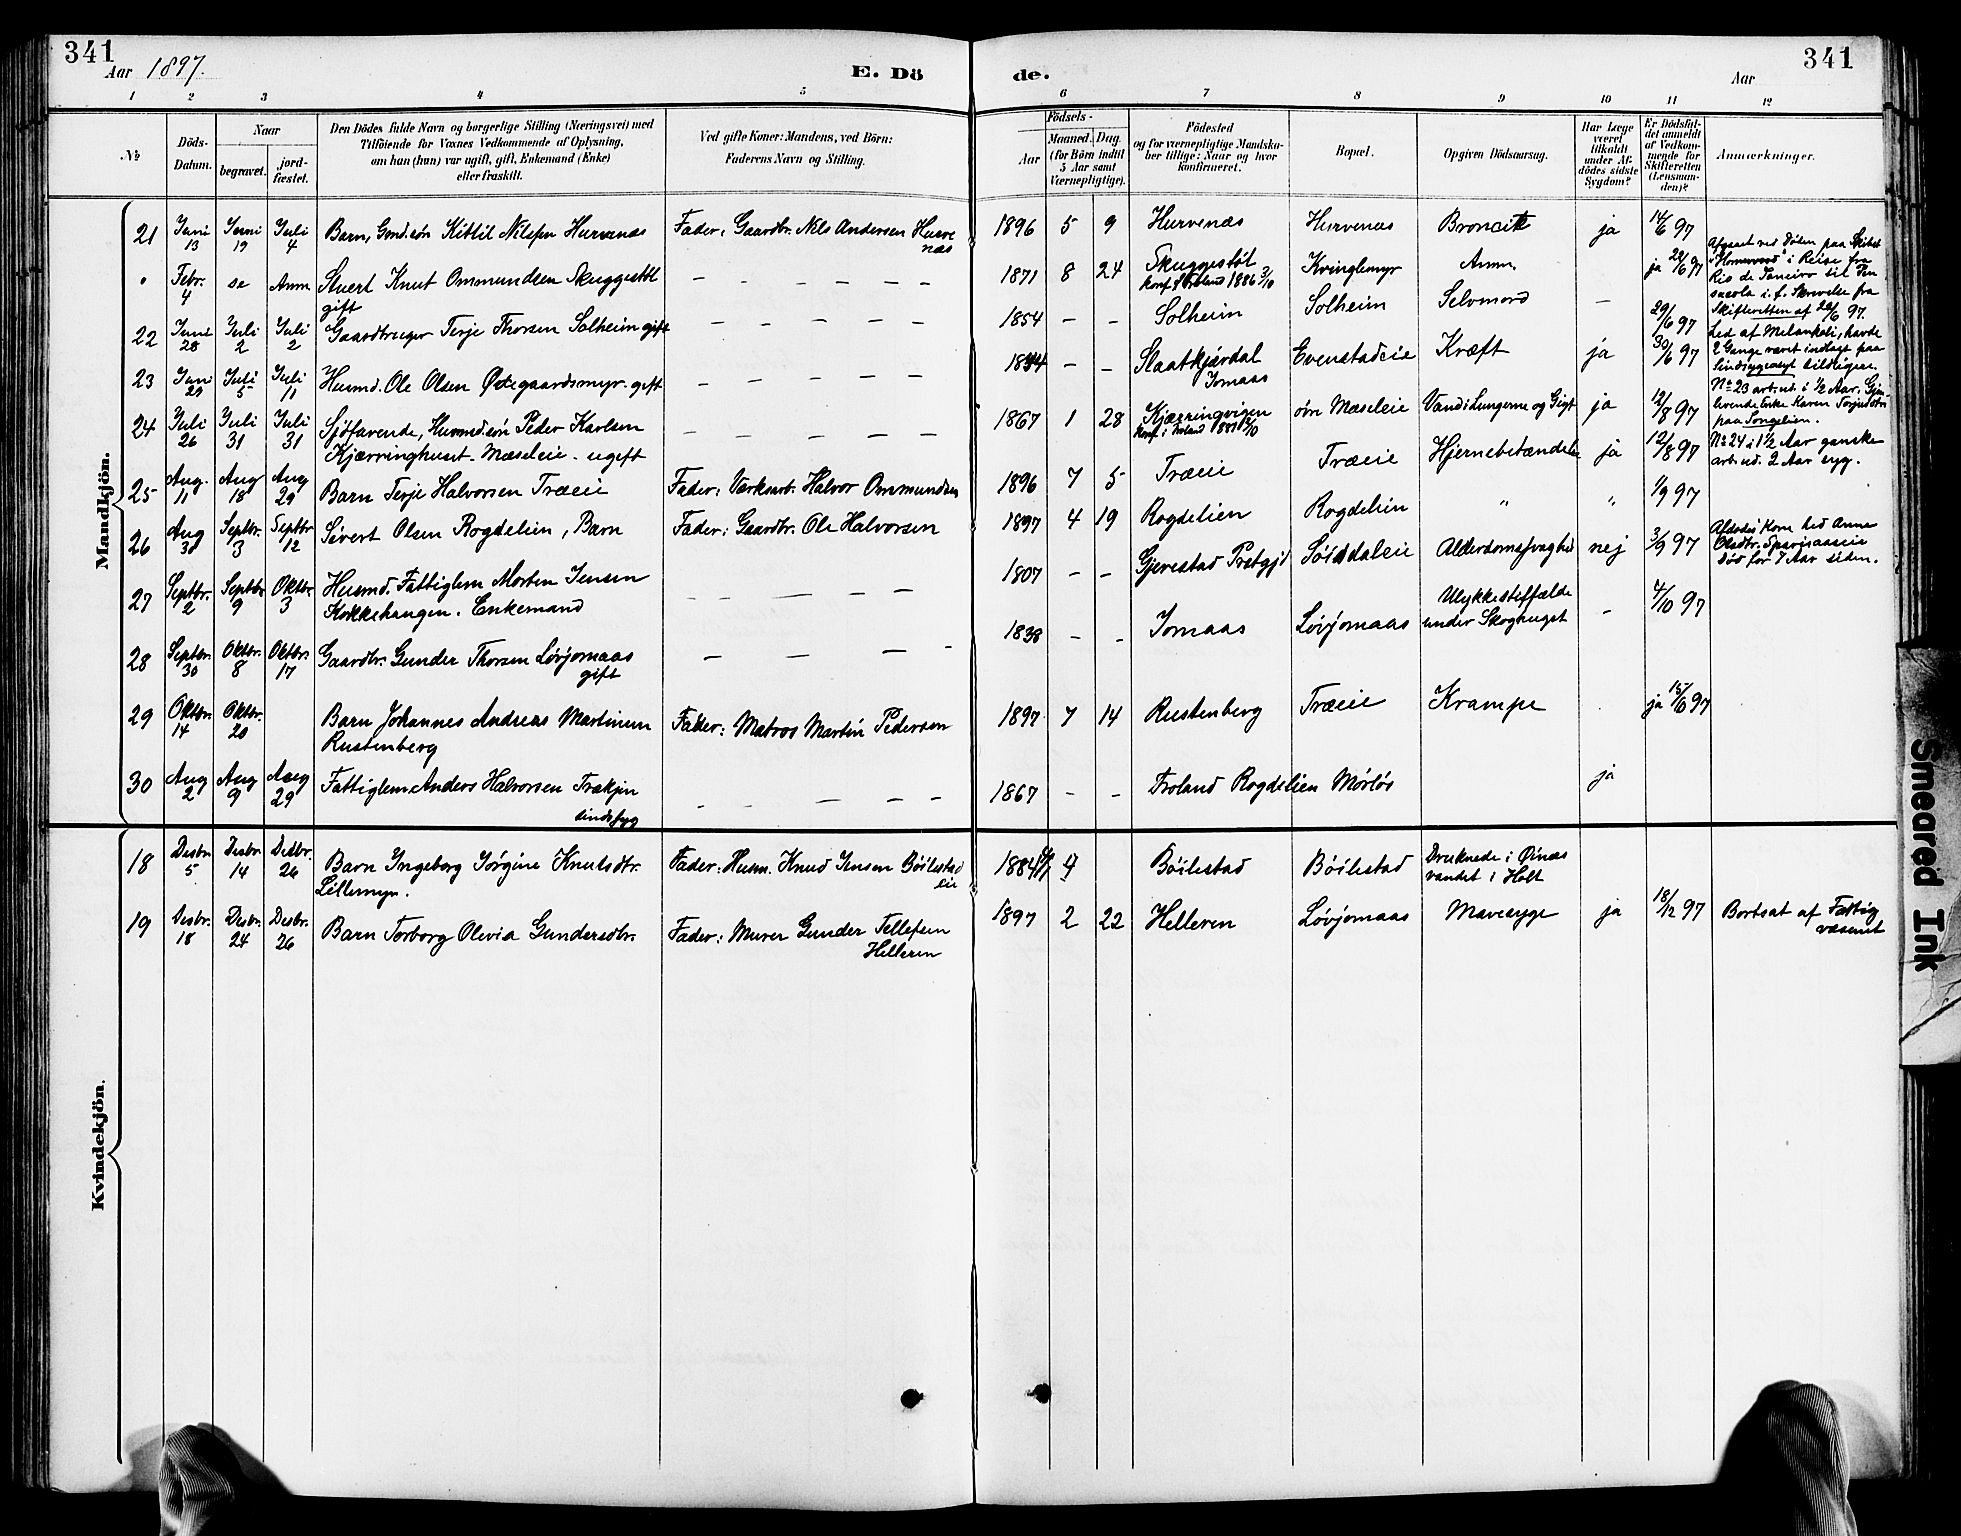 341
Aar 1897.
E. Dö
de.
Aar
341
1 2 3 4 5 6 7 8 9 10 11 12
№
Döds-
Datum.
Naar
begravet.
jord-
fæstet.
Den Dödes fulde Navn og borgerlige Stilling (Næringsvei) med
Tilföiende for Voxnes Vedkommende af Oplysning,
om han (hun) var ugift, gift, Enkemand (Enke)
eller fraskilt.
Ved gifte Koner: Mandens, ved Börn:
Faderens Navn og Stilling.
Födsels-
Aar
Maaned. Dag.
(for Börn indtil
5 Aar samt
Værnepligtige).
Födested
og for værnepligtige Mandska-
ber tillige: Naar og hvor
konfirmeret.
Bopæl.
Opgiven Dödsaarsag.
Har Læge
været
tilkaldt
under Af-
dödes sidste
Sygdom?
Er Dödsfal-
det anmeldt
af Vedkom-
mende for
Skifteretten
(Lensman-
den)?
Anmærkninger.
Mandkjön.
21 Juni 13 Juni 19 Juli 4 Barn, Gmd.søn Kittil Nilsen Hurvenæs Fader: Gaardbr. Nils Andersen Hurve
næs
1896 5 9 Hurvenæs Hurvenæs Broncit ja 14/6 97
" Febr. 4 se Anm Stuert Knut Ommundsen Skuggestøl
gift
1871 8 24 Skuggestøl Kvinglemyr Anm. ja 24/6 97
Konf. i Froland 1886 3/10
Afgaaet ved Døden paa Skibet
i Reise fra
Rio de Janeiro til Pen
sacola i. f. Skrivelse fra
Skifteretten af 22/6 97.
22 Juni 28 Juli 2 Juli 2 Gaardbruger Terje Thorsen Solheim gift
1854 – – Solheim Solheim Selvmord – 29/6 97
Led af Melankoli, havde
2 Gange været indlagt paa
Sindsygeasyl tidligere.
23 Juni 29 Juli 5 Juli 11 Husmd. Ole Olsen Østegaardsmyr. gift
1834 – – Slaatkjærdal Evenstadeie Kræft ja 30/6 97
Jomaas
No 23 arb.ud. i 1/2 Aar. Gjen
levende Enke Karen Terjesdtr
paa Songelien.
24 Juli 26 Juli 31 Juli 31 Sjøfarende, Husmdsøn Peder Karlsen
Kjærringhuset. Mæseleie. ugift
1867 1 28 Kjærringvigen øvr. Mæseleie Vand i Lungerne og Gigt ja 12/8 97
No 24 i 1 1/2 Aar ganske
arb.ud. 2 Aar syg.
25 Aug. 11 Aug 18 Aug 29 Barn Terje Halvorsen Træeie Fader: Værksarb. Halvor Ommundsen
1896 7 5 Træeie Træeie Hjernebetændelse ja 12/8 97
26 Aug 30 Septbr. 3 Septbr 12 Sivert Olsen Rogdelien, Barn Fader: Gaardbr. Ole Halvorsen
1897 4 19 Rogdelien Rogdelien " " 1/9 97
27 Septbr. 2 Septbr 9 Oktbr. 3 Husmd. Fattiglem Morten Jensen
Klokkehaugen. Enkemand
1807 – – Gjerestad Prstgjd Søiddaleie Alderdomssvaghed nej 3/9 97
Afdødes Kone hed Anne
Olsdtr.
død for 7 Aar siden.
28 Septbr. 30 Oktbr. 8 Oktbr. 17 Gaardbr. Gunder Thorsen Løvjomaas
gift
1838 – – Jomaas Løvjomaas Ulykkestilfælde
under Skoghugst – 4/10 97
29 Oktbr. 14 Oktbr. 20 Barn Johannes Andreas Martinsen
Rustenberg
Fader: Matros Martin Pedersen
1897 7 14 Rustenberg Træeie Krampe ja 15/10 97
30 Aug 2 Aug 9 Aug 29 Fattiglem Anders Halvorsen Trækjen
sindssyg
1867 – – Froland Rogdelien Mørløs ja
Kvindekjön.
18 Desbr 5 Desbr 14 Desbr. 26 Barn Ingeborg Jørgine Knutsdtr.
Lillemyr.
Fader: Husm. Knud Jensen Bøilestad
eie
1884 4 Bøilestad Bøilestad Druknede i Øinæs
vandet i Holt
19 Desbr. 18 Desbr. 24 Desbr. 26 Barn Torborg Olivia Gundersdtr. Fader: Murer Gunder Tellefsen
Helleren
1897 2 22 Helleren Løvjomaas Mavesyge ja 18/12 97 Bortsat af Fattig
væsenet
Smeared Ink